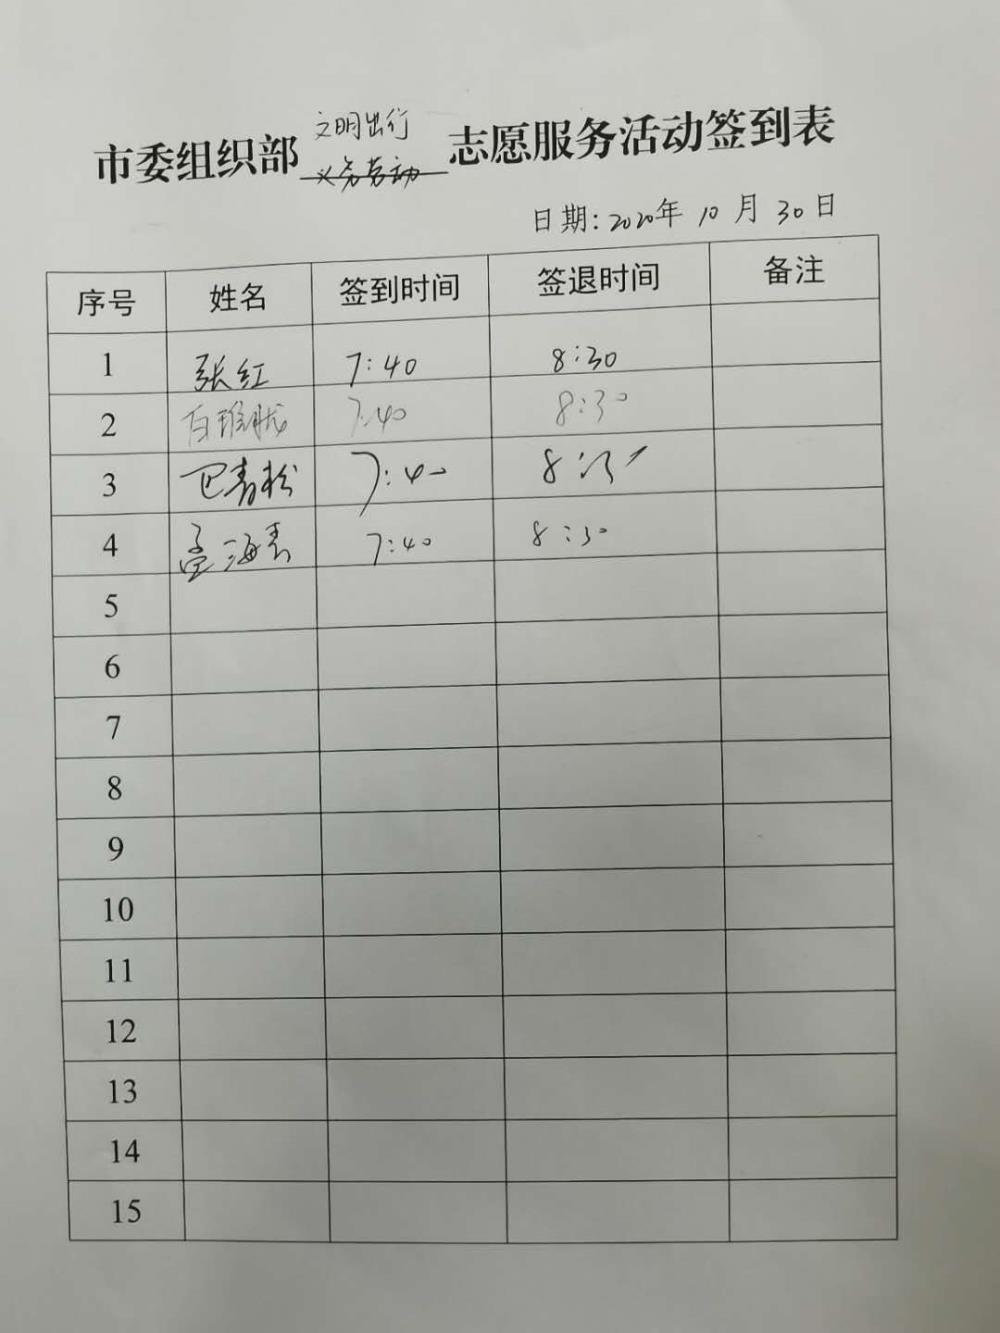 文明出行
市委组织部义务劳动志愿服务活动签到表
日期:2020年 10 月 30 日
序号 姓名 签到时间 签退时间 备注
1 张红 7:40 8:30
2 7:40 8:30
3 巴青松 7:40
4 海青 7:40 8:30
5
6
7
8
9
10
11
12
13
14
15